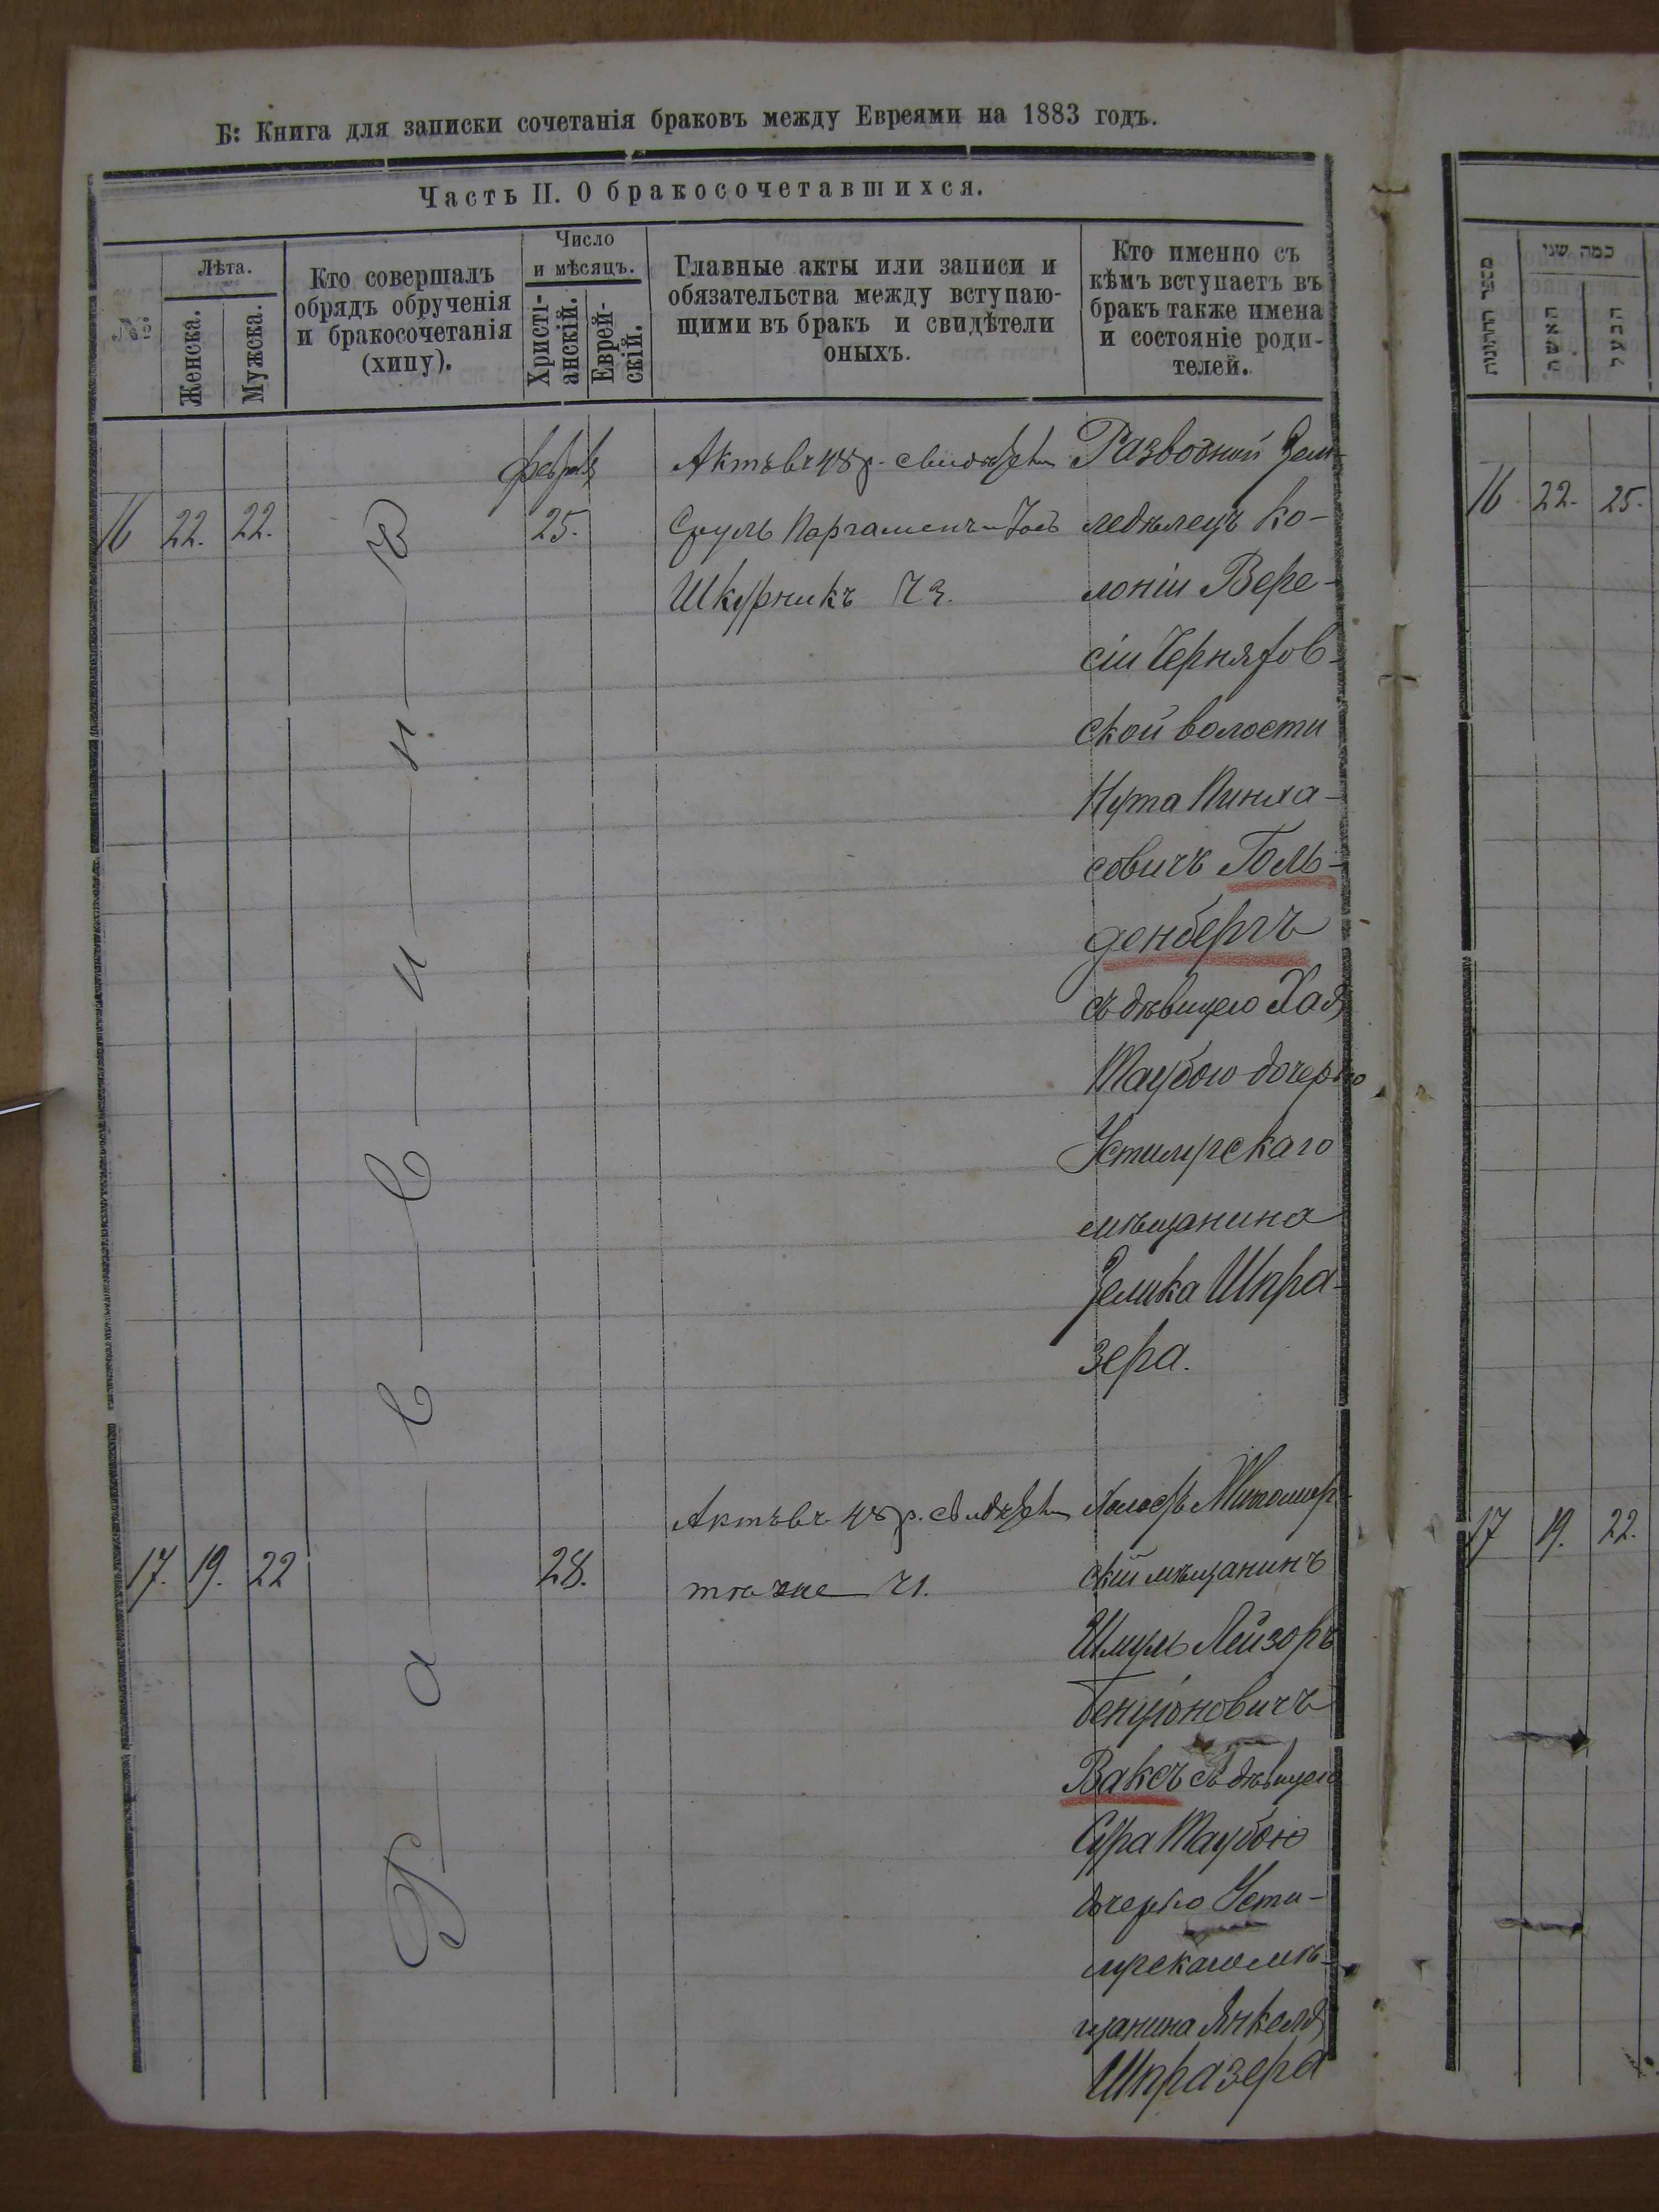 Б: Книга для записки сочетанія браковъ между Евреями на 1883 годъ.
Часть II. О бракосочетавшихся.
№
Лѣта.
Женска.
Мужска.
Кто совершалъ
обрядъ обрученія
и бракосочетанія
(хипу).
Число
и мѣсяцъ.
Христі-
анскій.
Еврей-
скій.
Главные акты или записи и
обязательства между вступаю-
щими въ бракъ и свидѣтели
оныхъ.
Кто именно съ
кѣмъ вступаетъ въ
бракъ также имена
и состояніе роди-
телей.
Февраля
16 22. 22.
25.
Актъ въ 48 р. свидѣтели
Сруль Паргаменъ и
Шкурникъ
Разводный Зем-
ледѣлецъ ко-
лоніи Вере-
сіи Черняхов-
ской волости
Нута Пинха-
совичъ Голь-
денбергъ
съ дѣвицею Хая
Таубою дочерью
Устилугскаго
мѣщанина
Зелика Шпра-
зера.
Раввинъ
17. 19. 22
28.
Актъ въ 48 р. свидѣтели
тѣ же
Холостъ Житомир-
скій мѣщанинъ
Шмуль Лейзоръ
Бенціоновичъ
Ваксъ съ дѣвицею
Сура Таубою
дочерью Усти-
лугскаго мѣ-
щанина Янкеля
Шпразера
מספר החתונות
כמה שני
האשה
הבעל
16 22. 25.
17 19. 22.